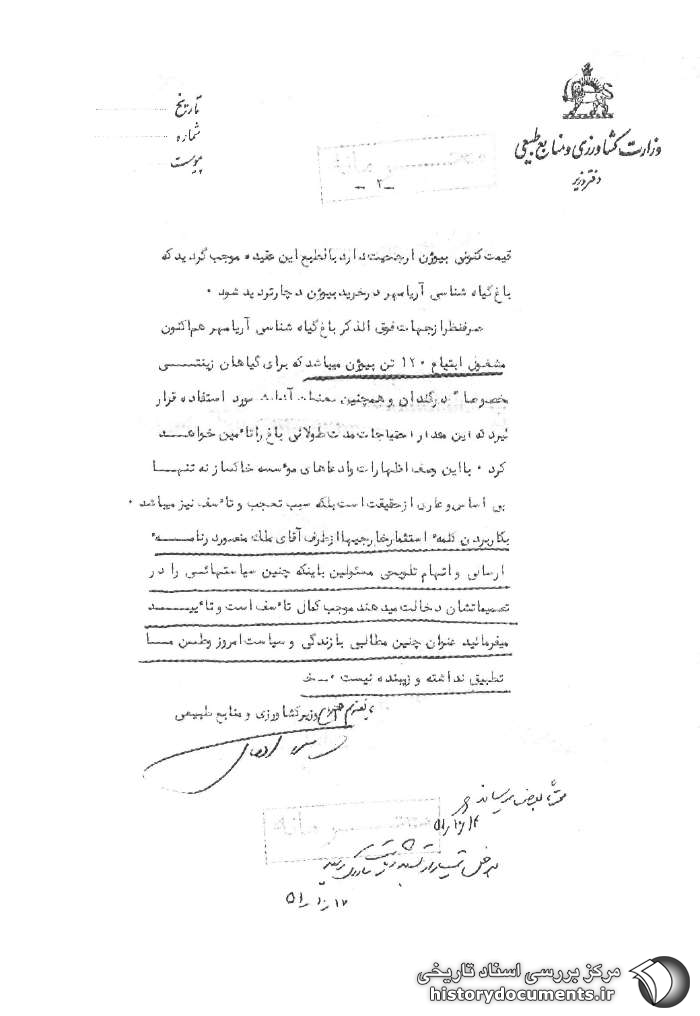 وزارت کشاورزی و منابع طبیعی
دفتر وزیر
تاریخ
شماره
پیوست
ـ ۲ ـ
قیمت کنونی بیوژن ارجحیت دارد بالطبع این عقیده موجب گردید که
باغ گیاه شناسی آریامهر در خرید بیوژن دچار تردید شود .
صرفنظر از جهات فوق الذکر باغ گیاه شناسی آریامهر هم اکنون
مشغول ابتیاع ۱۲۰ تن بیوژن میباشد که برای گیاهان زینتـــی
خصوصا" در گلدان و همچنین بعنوان آزمایش مورد استفاده قرار
گیرد که این مقدار احتیاجات مدت طولانی باغ را تأمین خواهـــد
کرد . با این وصف اظهارات و ادعاهای مؤسسه خاکساز نه تنهـــا
بی اساس و عاری از حقیقت است بلکه سبب تعجب و تأسف نیز میباشد .
بکار بردن کلمه استثمار خارجیها از طرف آقای ملک منصور در نامـــه
ارسالی و اتهام تلویحی مسئولین باینکه چنین سیاستهائی را در
تصمیماتشان دخالت میدهند موجب کمال تأسف است و تأییـــد
میفرمائید عنوان چنین مطالبی با زندگی و سیاست امروز وطـن مـــا
تطبیق نداشته و زیبنده نیست . ـ خ
وزیر کشاورزی و منابع طبیعی
مرکز بررسی اسناد تاریخی
historydocuments.ir